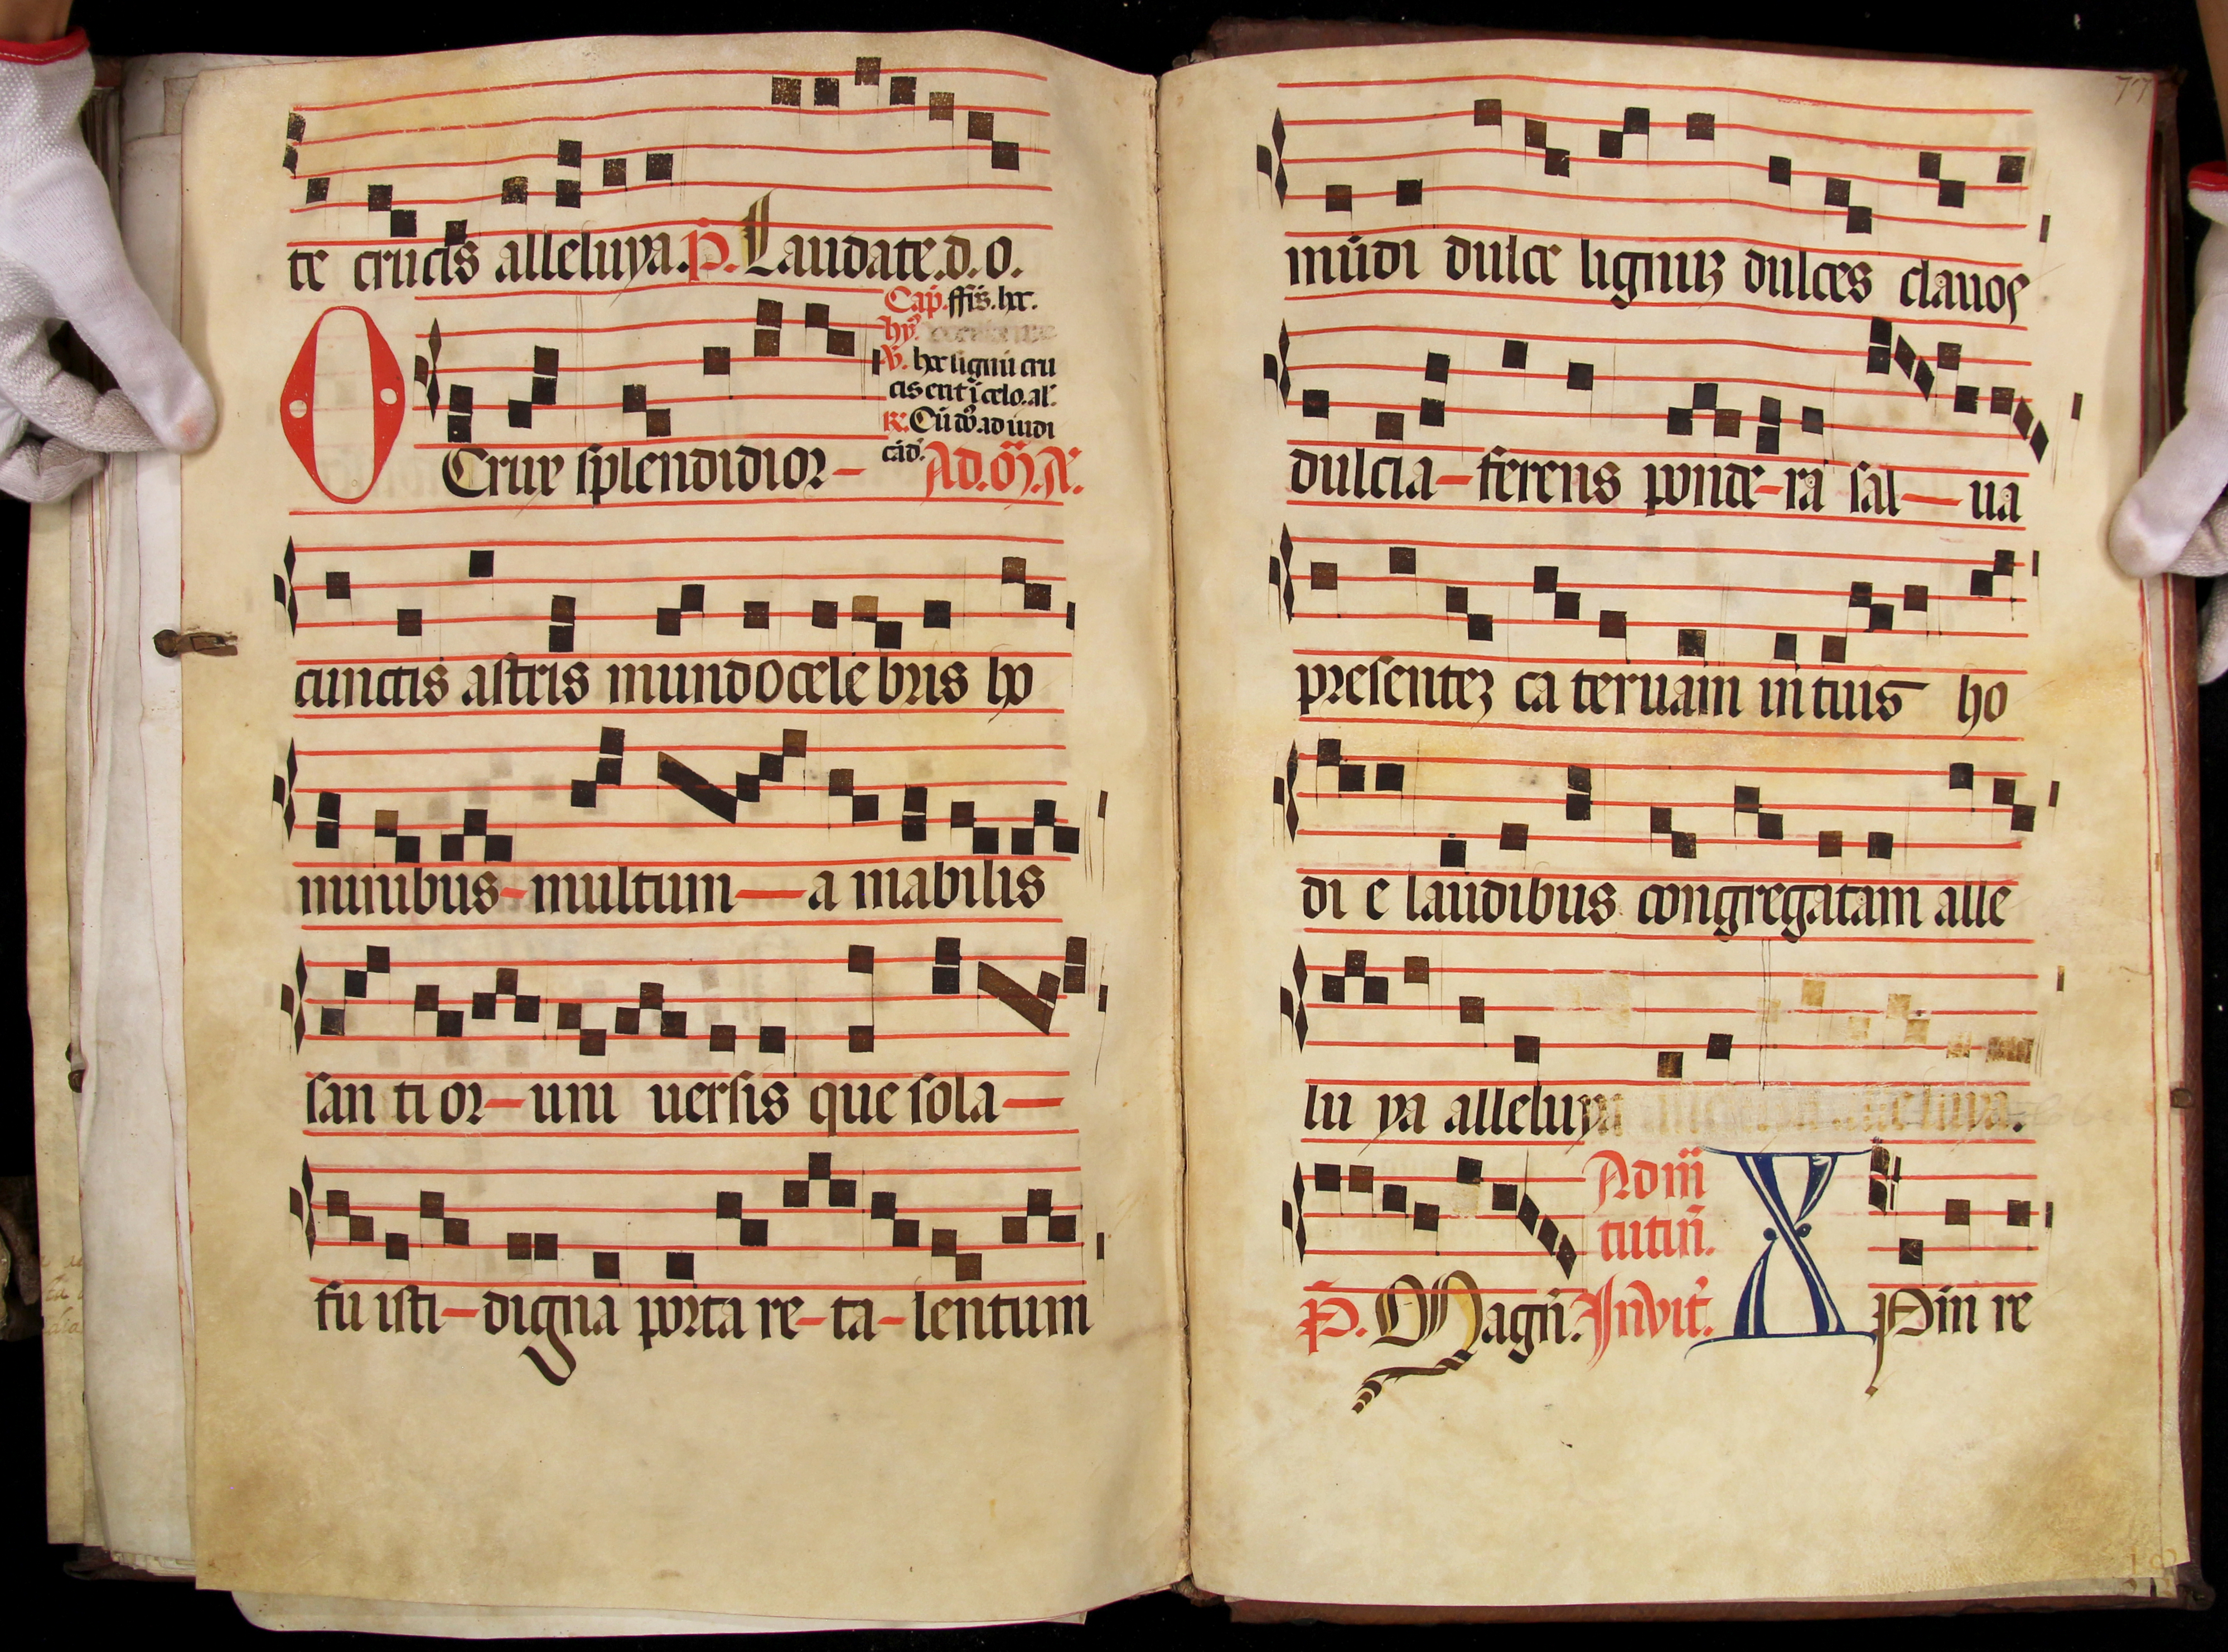 te crucis alleluya. P. Laudate.d.o.
Cap. ffis. hec.
hy.
V. hec lignu cru
cis erit i celo. al.
R. Cu do. ad iudi
cad.
O Crux splendidior- Ad. M. A.
cunctis astris mundo cele bris ho
minibus-multum-a mabilis
san ti or-uni uersis que sola-
fu isti-digna porta re-ta-lentum
77
mūdi dulce lignuꝫ dulces clauos
dulcia-ferens ponde-ra sal-ua
presenteꝫ ca teruam in tuis ho
di e laudibus congregatam alle
lu ya alleluya alleluya.
P. Magn. Ad m
tutin.
Invit. X Pm re